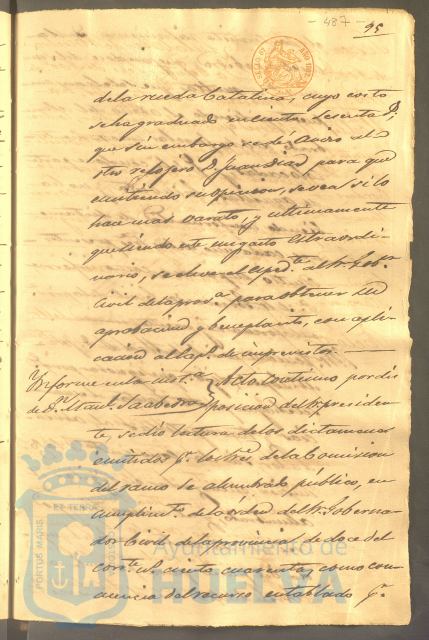 - 487 -
95
de la rueda Catalina, cuyo costo
se ha graduado en ciento sesenta
que sin embargo se dé aviso al
relojero D. Juan Diaz para que
emitiendo su opinion, se vea si lo
hace mas varato, y ultimamente
que siendo este un gasto extraordi-
nario, se eleve el Espd.te al Sr. Gob.r
Civil de la prov.a para obtener su
aprobacion y beneplacito, con apli-
cacion al cap.o de imprevistos.
Informe en la inst.a
de D. Man.l Saabedra
Acto continuo por dis
posicion del Sr. presiden-
te, se dió lectura de los dictamenes
emitidos p.r los Sres. de la Comision
del ramo de alumbrado público, en
cumplim.to de la órden del Sr. Goberna-
dor Civil de la provincia de doce del
corr.te n.o ciento cuarenta, como con-
secuencia del recurso entablado p.r
PORTUS MARIS
ET TERRAE
Ayuntamiento de
HUELVA